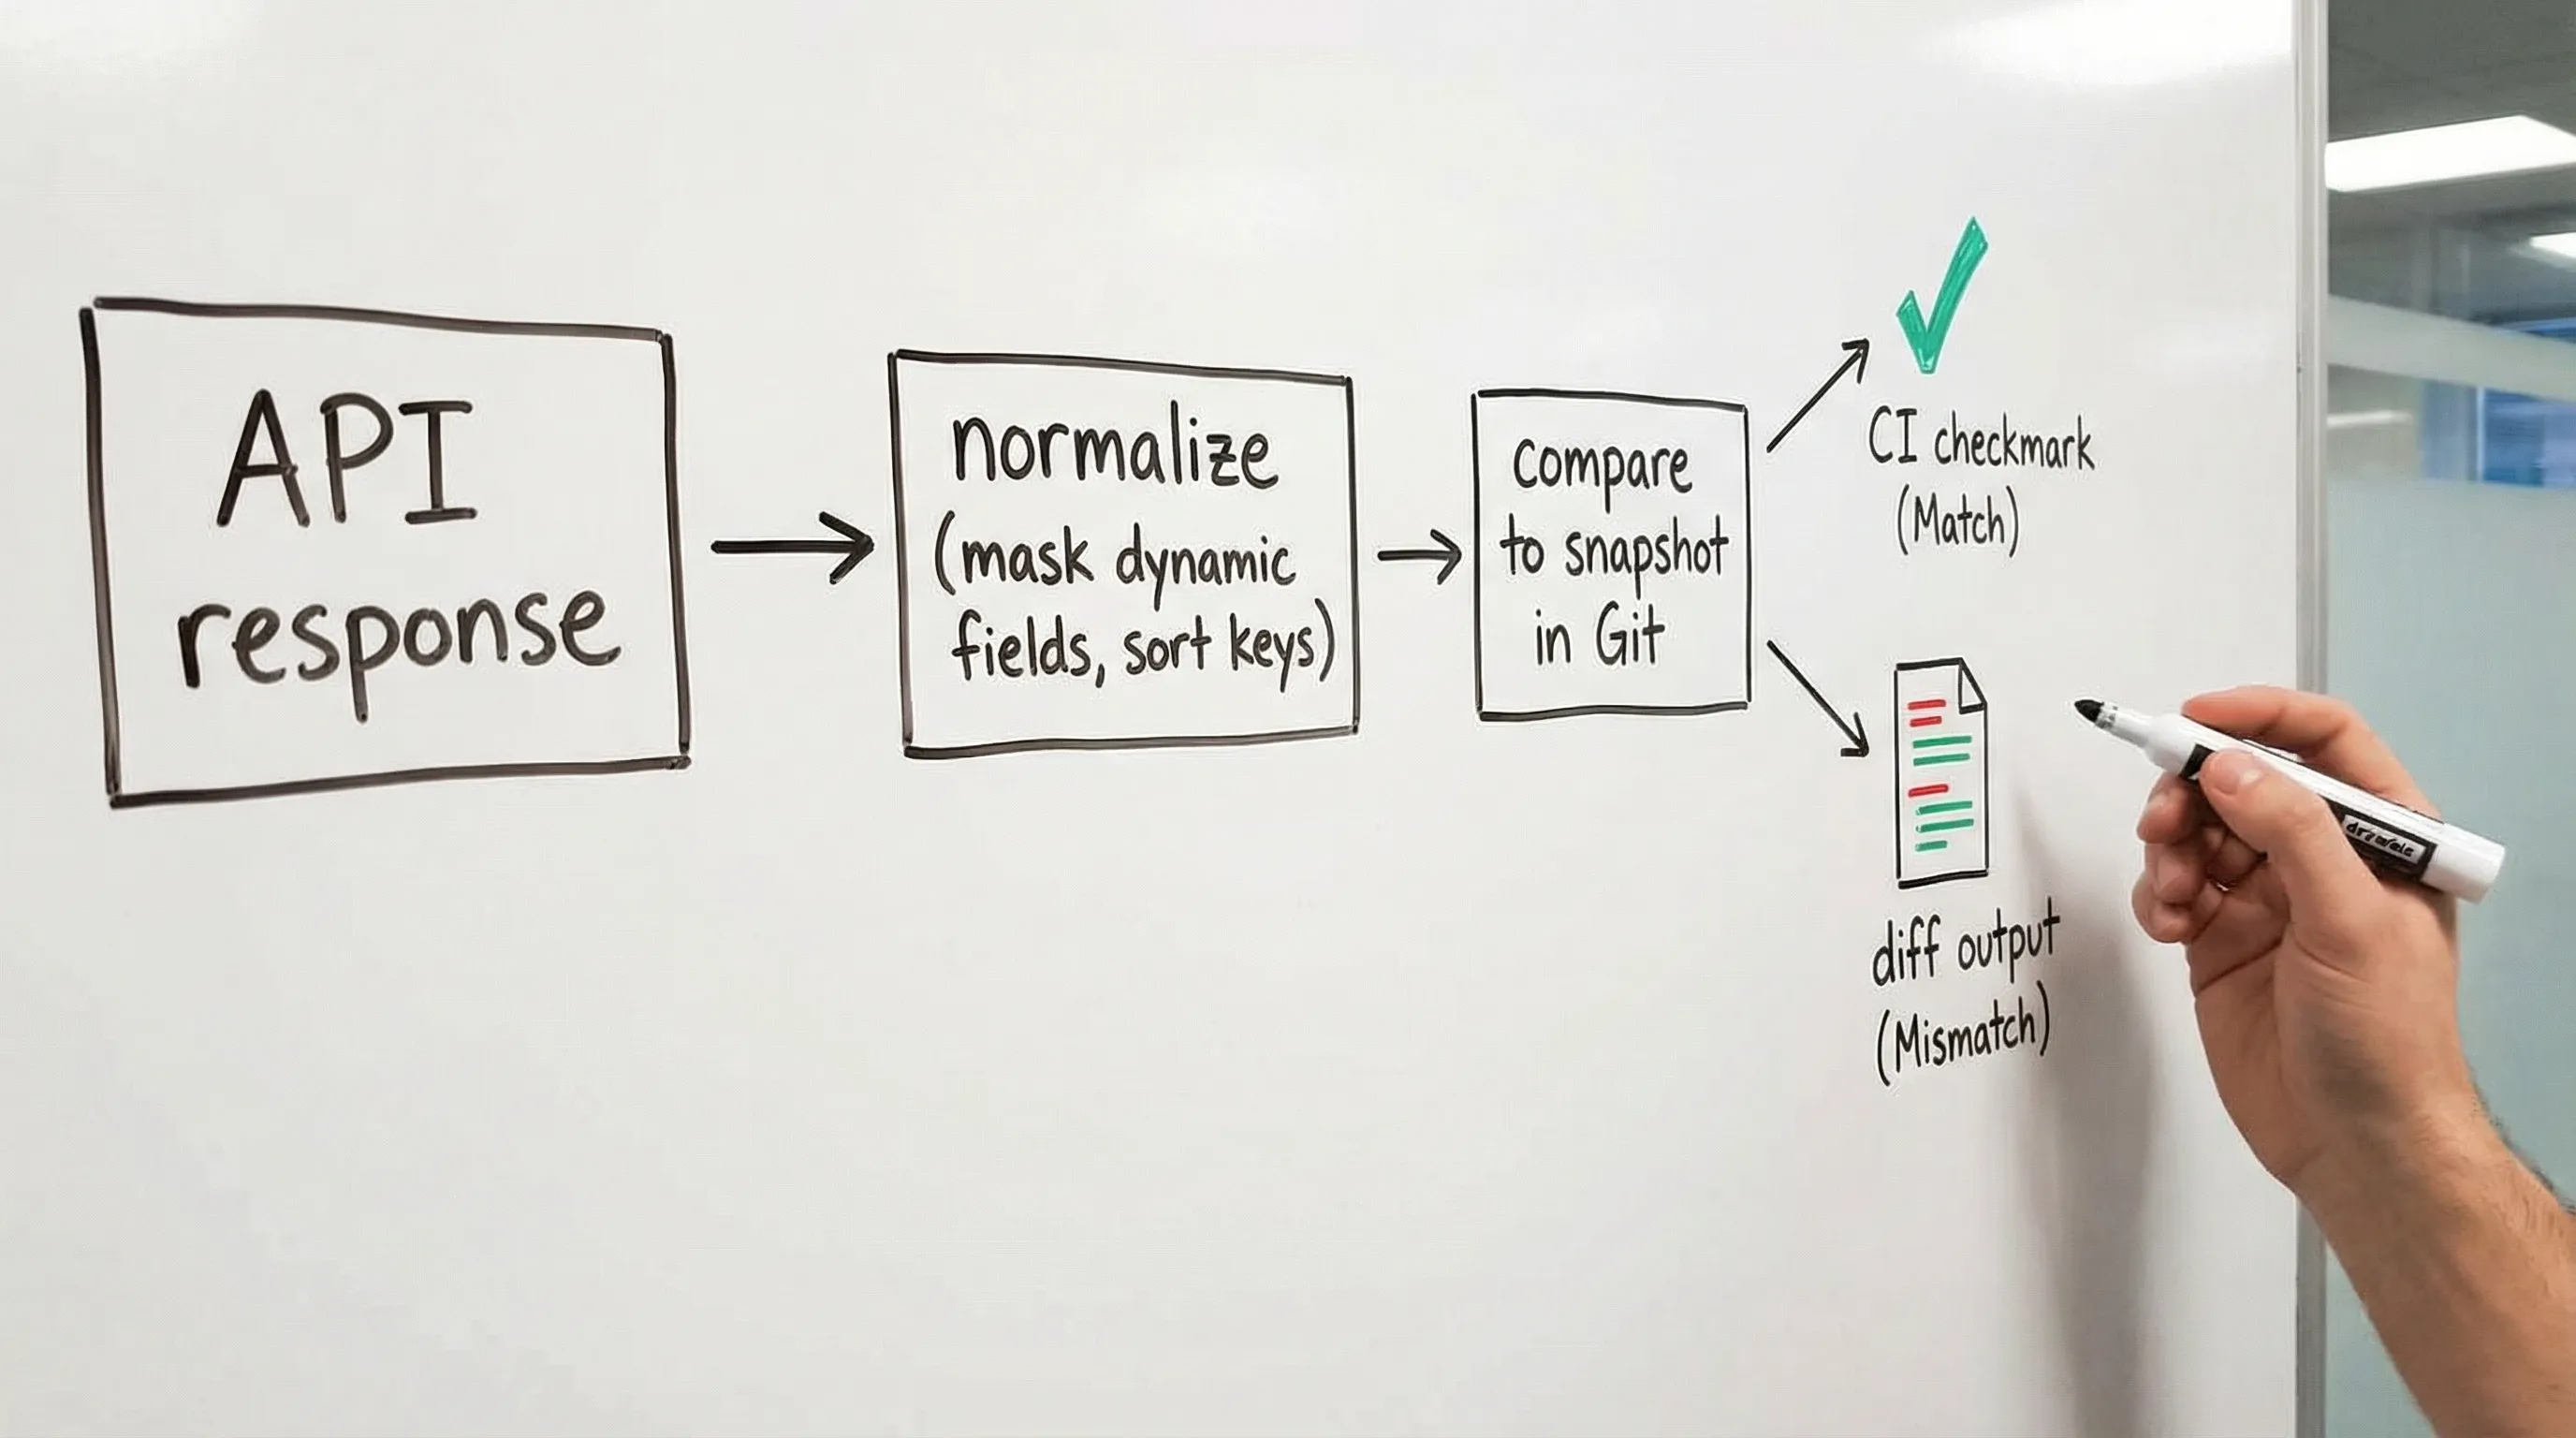 API
response
normalize
(mask dynamic
fields, sort keys)
compare
to snapshot
in Git
CI checkmark
(Match)
diff output
(Mismatch)